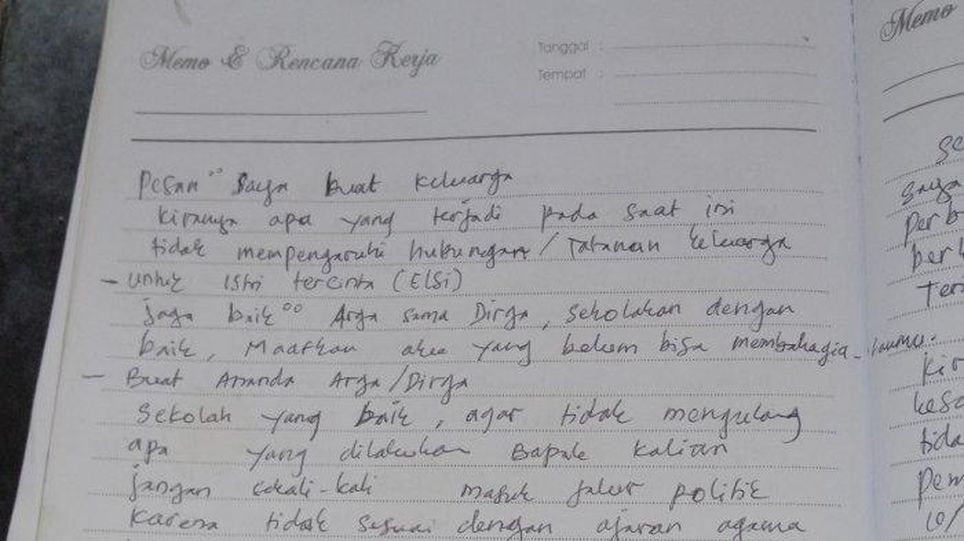 Memo & Rencana Kerja
Tanggal :
Tempat :
Pesan °° Saya buat keluarga
kiranya apa yang terjadi pada saat ini
tidak mempengaruhi hubungan / Tatanan keluarga
- Untuk Istri tercinta (ELSi)
jaga baik °° Arga sama Dirga, sekolakan dengan
baik, Maafkan aku yang belum bisa membahagia-kanmu.
- Buat Ananda Arga/Dirga
Sekolah yang baik, agar tidak mengulang
apa yang dilakukan Bapak kalian
jangan sekali-kali masuk jalur politik
karena tidak sesuai dengan ajaran agama
Memo
saya